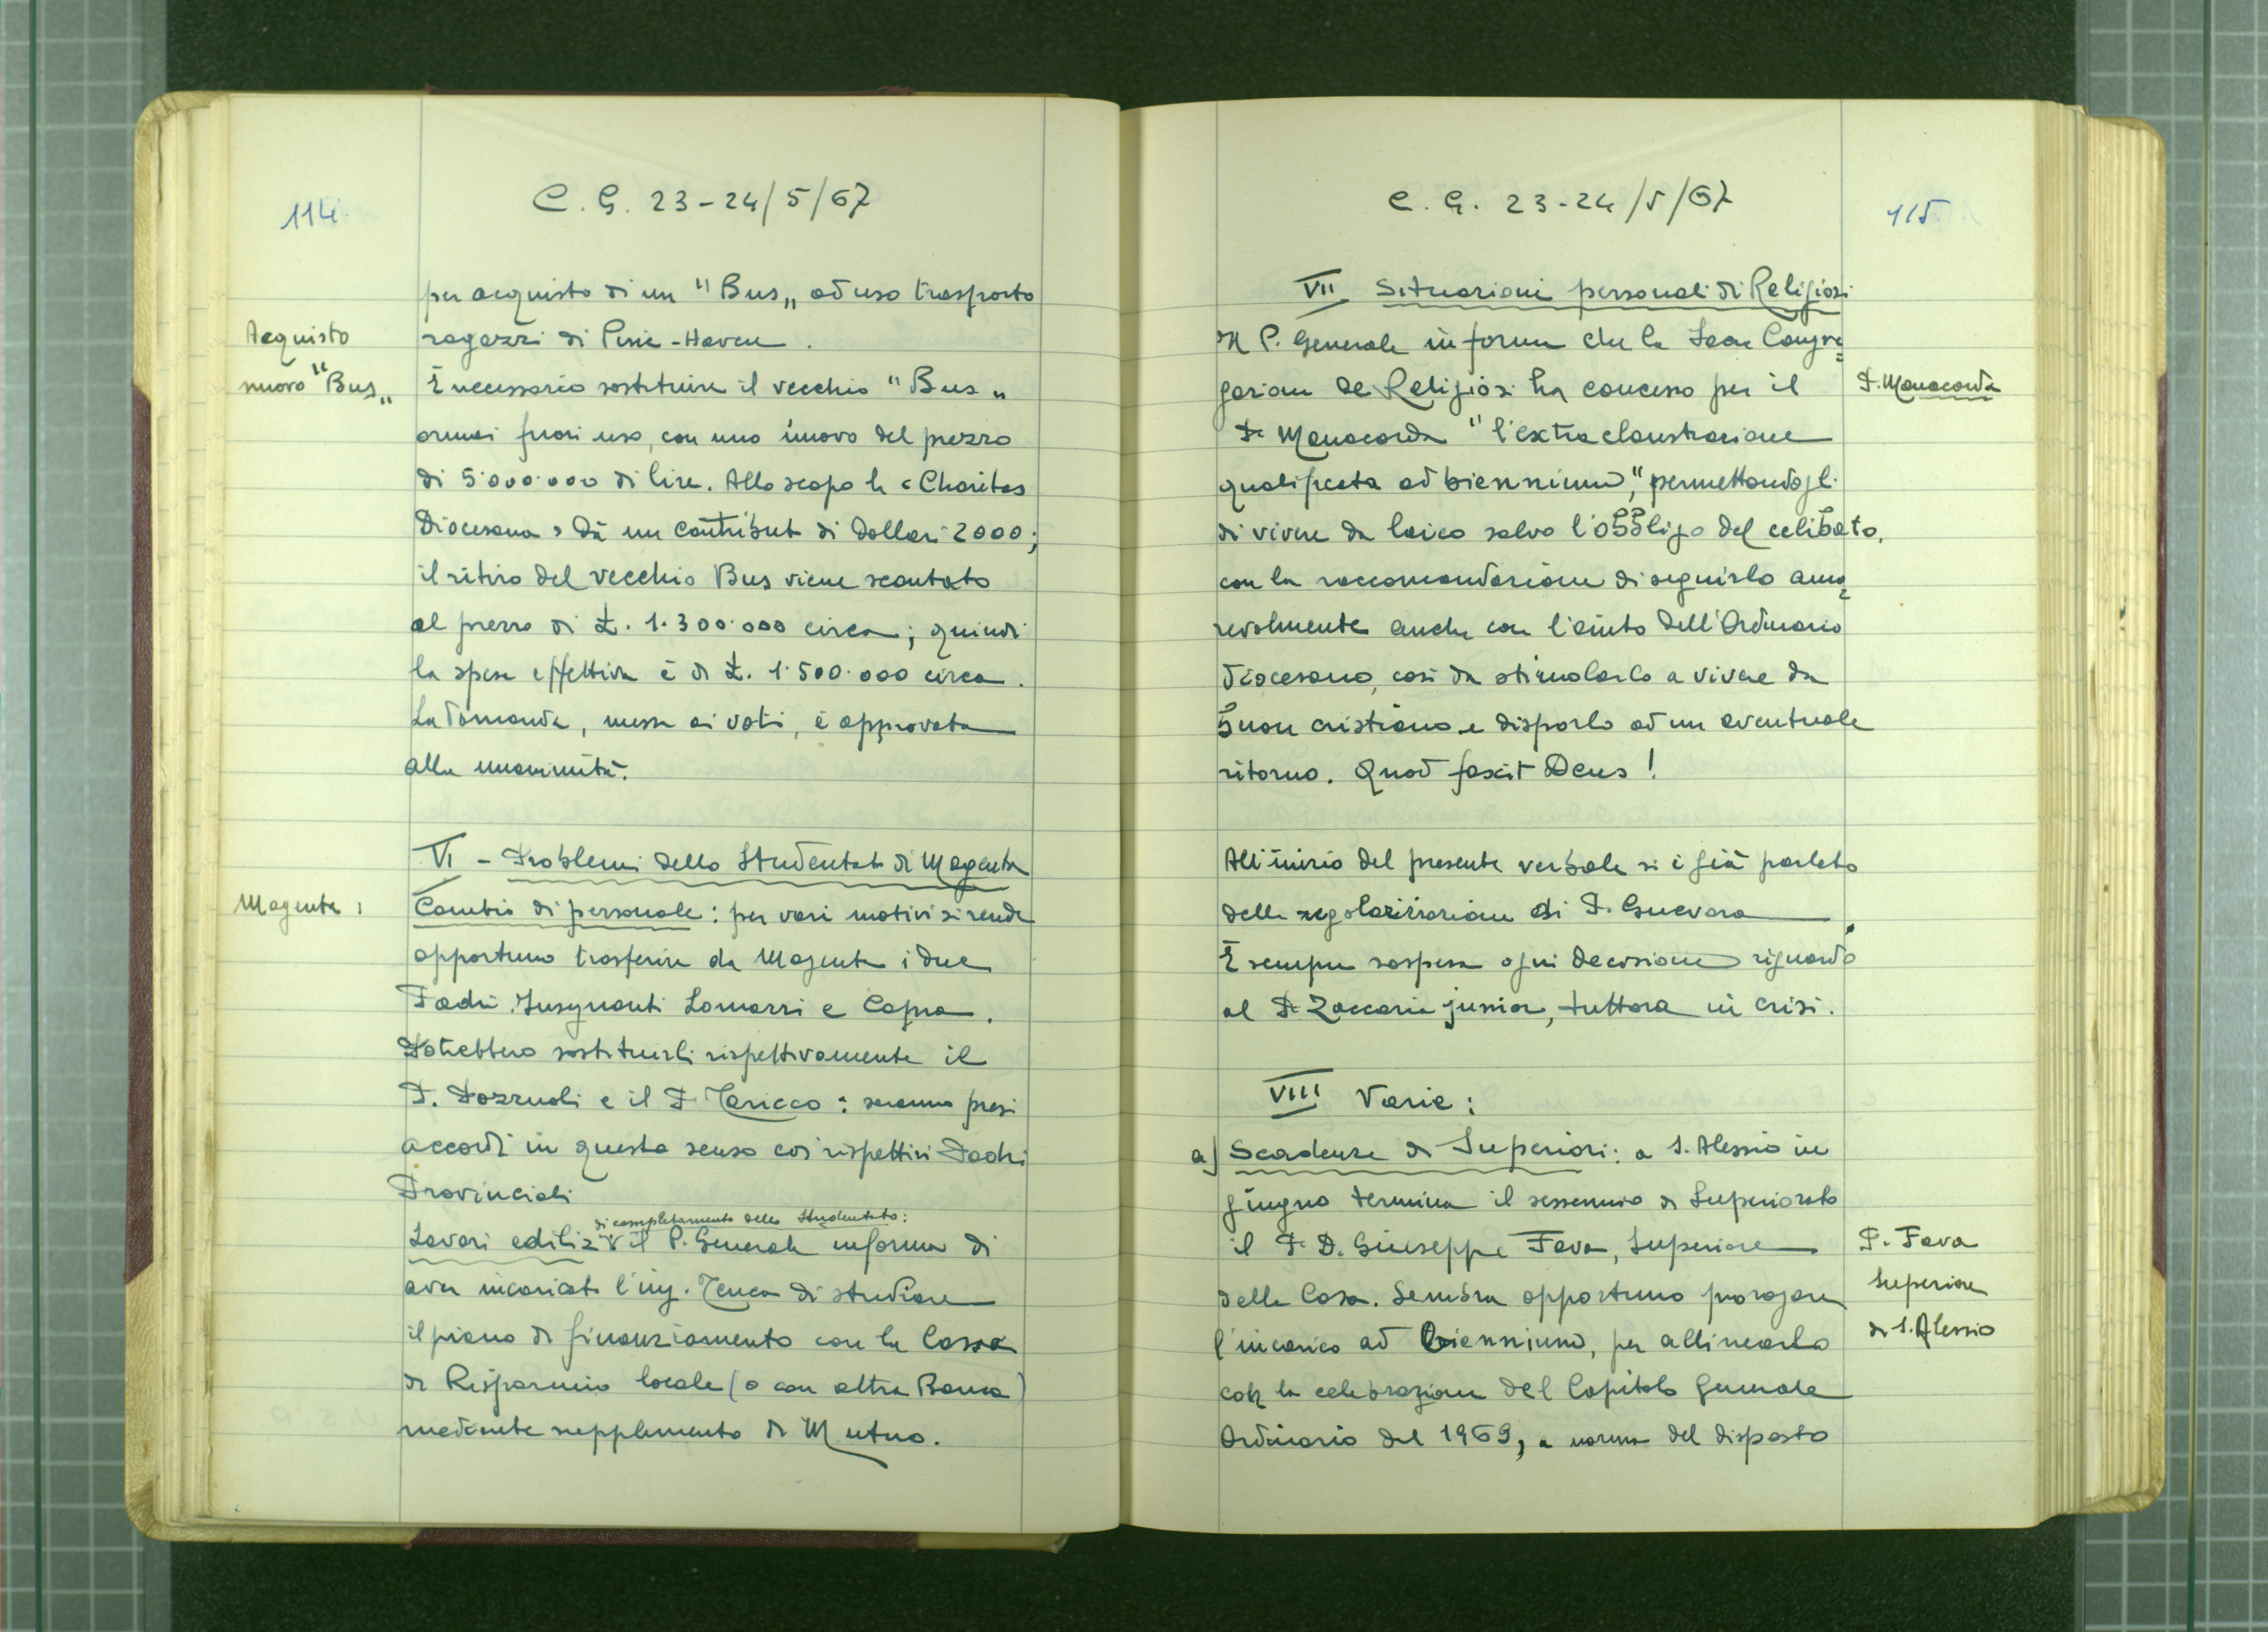 114
C. G. 23-24/5/67
per acquisto di un "Bus„ ad uso trasporto
Acquisto
ragazzi di Pine-Haven.
nuovo "Bus„
È necessario sostituire il vecchio "Bus„
ormai fuori uso, con uno nuovo del prezzo
di 5.000.000 di lire. Allo scopo la «Charitas
Diocesana» dà un contributo di dollari 2000;
il ritiro del vecchio Bus viene scontato
al prezzo di £. 1.300.000 circa; quindi
la spesa effettiva è di £. 1.500.000 circa.
La domanda, messa ai voti, è approvata
alla unanimità.
VI - Problemi dello Studentato di Magenta
Magenta:
Cambio di personale: per vari motivi si rende
opportuno trasferire da Magenta i due
Padri Insegnanti Lomazzi e Capra.
Potrebbero sostituirli rispettivamente il
P. Pozzuoli e il P. Taricco: saranno presi
accordi in questo senso coi rispettivi Padri
Provinciali
di completamento dello Studentato:
Lavori edilizi il P. Generale informa di
aver incaricato l'ing. Tenca di studiare
il piano di finanziamento con la Cassa
di Risparmio locale (o con altra Banca)
mediante supplemento di Mutuo.
C. G. 23-24/5/67
115
VII Situazioni personali di Religiosi
Il P. Generale informa che la Sacra Congre=
gazione de Religiosi ha concesso per il
P. Manacorda
P. Manacorda "l'extraclaustrazione
qualificata ad biennium", permettendogli
di vivere da laico salvo l'obbligo del celibato,
con la raccomandazione di seguirlo amo=
revolmente anche con l'aiuto dell'Ordinario
diocesano, così da stimolarlo a vivere da
buon cristiano e disporlo ad un eventuale
ritorno. Quod faxit Deus!
All'inizio del presente verbale si è già parlato
della regolarizzazione di P. Guevara.
È sempre sospesa ogni decisione riguardo
al P. Zaccaria junior, tuttora in crisi.
VIII Varie:
a) Scadenze di Superiori: a S. Alessio in
giugno termina il sessennio di Superiorato
il P. D. Giuseppe Fava, Superiore
P. Fava
della Casa. Sembra opportuno prorogare
Superiore
l'incarico ad biennium, per allinearlo
di S. Alessio
con la celebrazione del Capitolo Generale
Ordinario del 1969, a norma del disposto